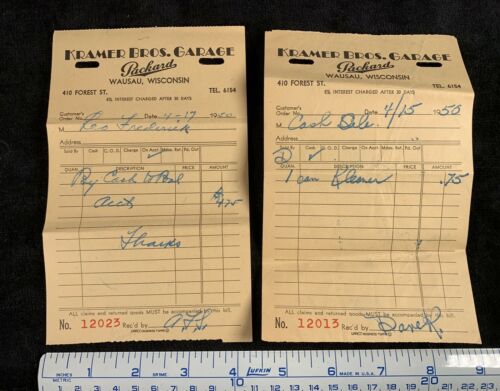 KRAMER BROS. GARAGE
Packard
WAUSAU, WISCONSIN
410 FOREST ST. TEL. 6154
6% INTEREST CHARGED AFTER 30 DAYS
Customer's
Order No. Date 4-17 1950
M Frederick
Sold By Cash C.O.D. Charge On Acct. Mdse. Ret. Pd. Out
QUAN. DESCRIPTION PRICE AMOUNT
By Cash to Bal
Acct 4.75
Thanks
ALL claims and returned goods MUST be accompanied by this bill.
No. 12023 Rec'd by
KRAMER BROS. GARAGE
Packard
WAUSAU, WISCONSIN
410 FOREST ST. TEL. 6154
6% INTEREST CHARGED AFTER 30 DAYS
Customer's
Order No. Date 4/15 1950
M Cash Sale.
Sold By Cash C.O.D. Charge On Acct. Mdse. Ret. Pd. Out
D
QUAN. DESCRIPTION PRICE AMOUNT
1 can Kleener .75
ALL claims and returned goods MUST be accompanied by this bill.
No. 12013 Rec'd by Dave K.
INCHES 1 2 3 4 LUFKIN 5 6 7 8 9
METRIC 10 MADE IN U.S.A. 20